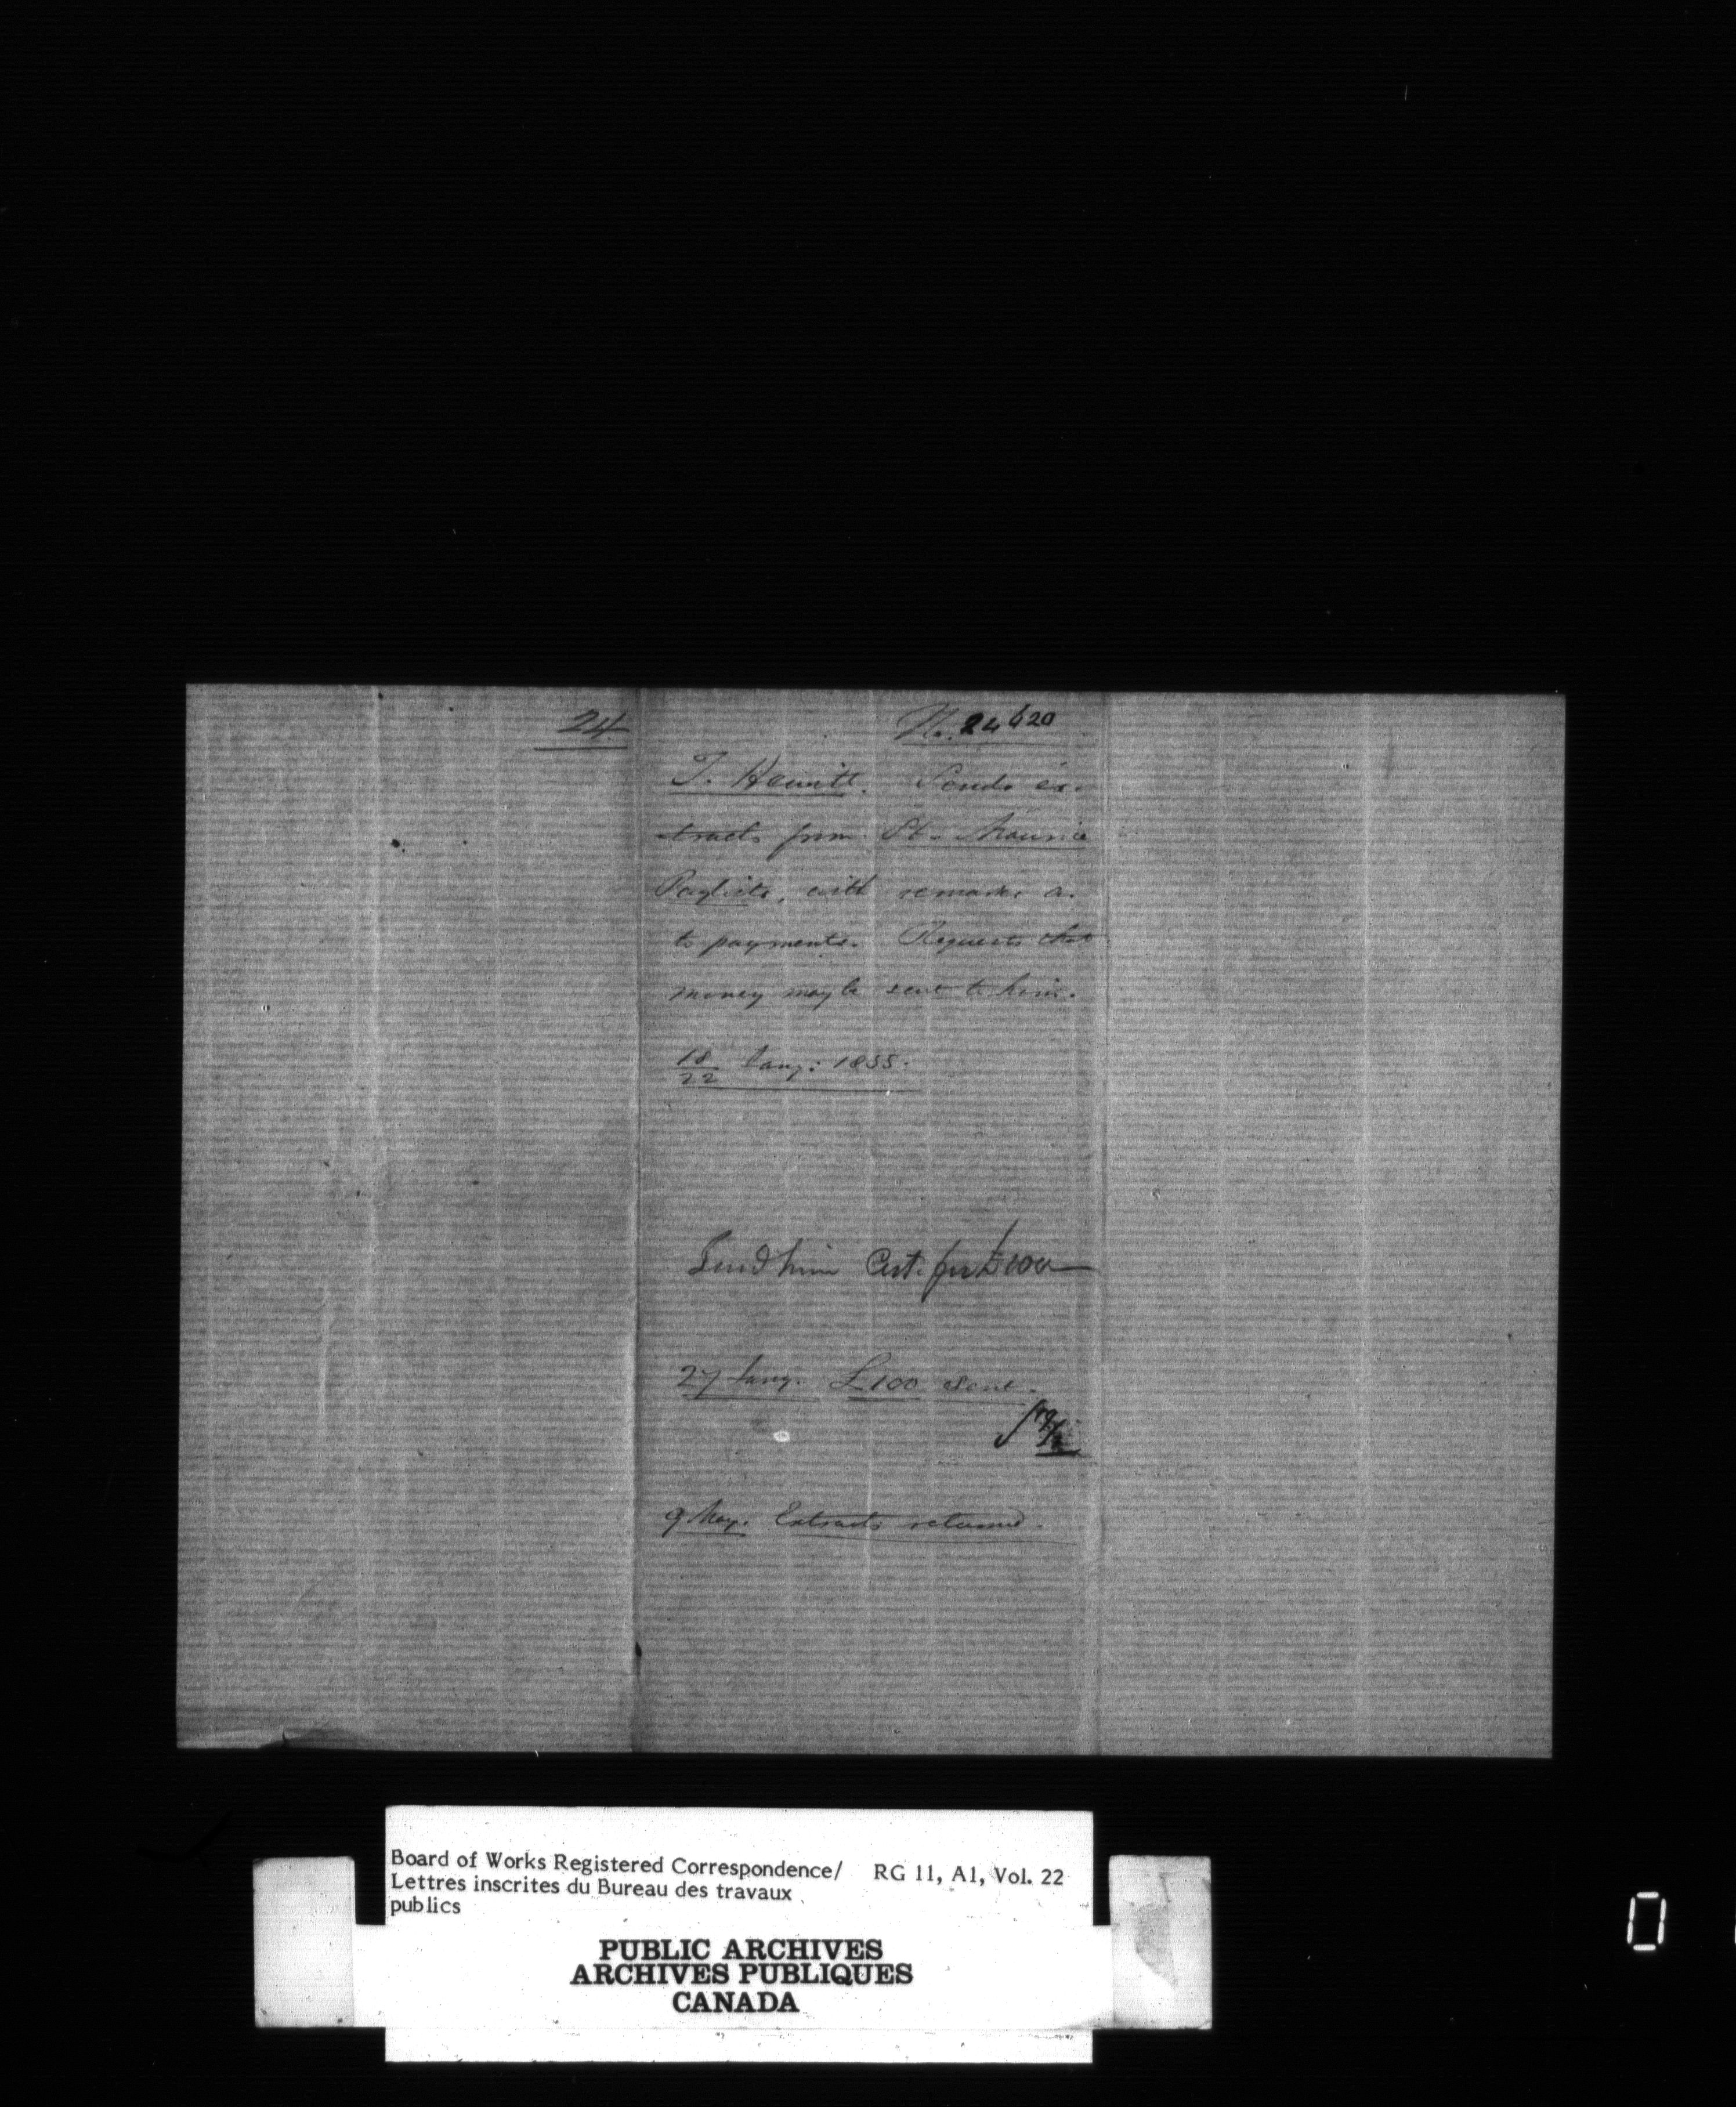 24
No. 24620
T. Hewitt. Sends ex-
tracts from St. Maurice
Paylists, with remarks as
to payments. Requests that
money may be sent to him.
18/22 Jany: 1855.
Send him Cert. for £100
27 Jany. £100 sent.
9 May. Extracts returned.
Board of Works Registered Correspondence/ RG 11, A1, Vol. 22
Lettres inscrites du Bureau des travaux
publics
PUBLIC ARCHIVES
ARCHIVES PUBLIQUES
CANADA
0